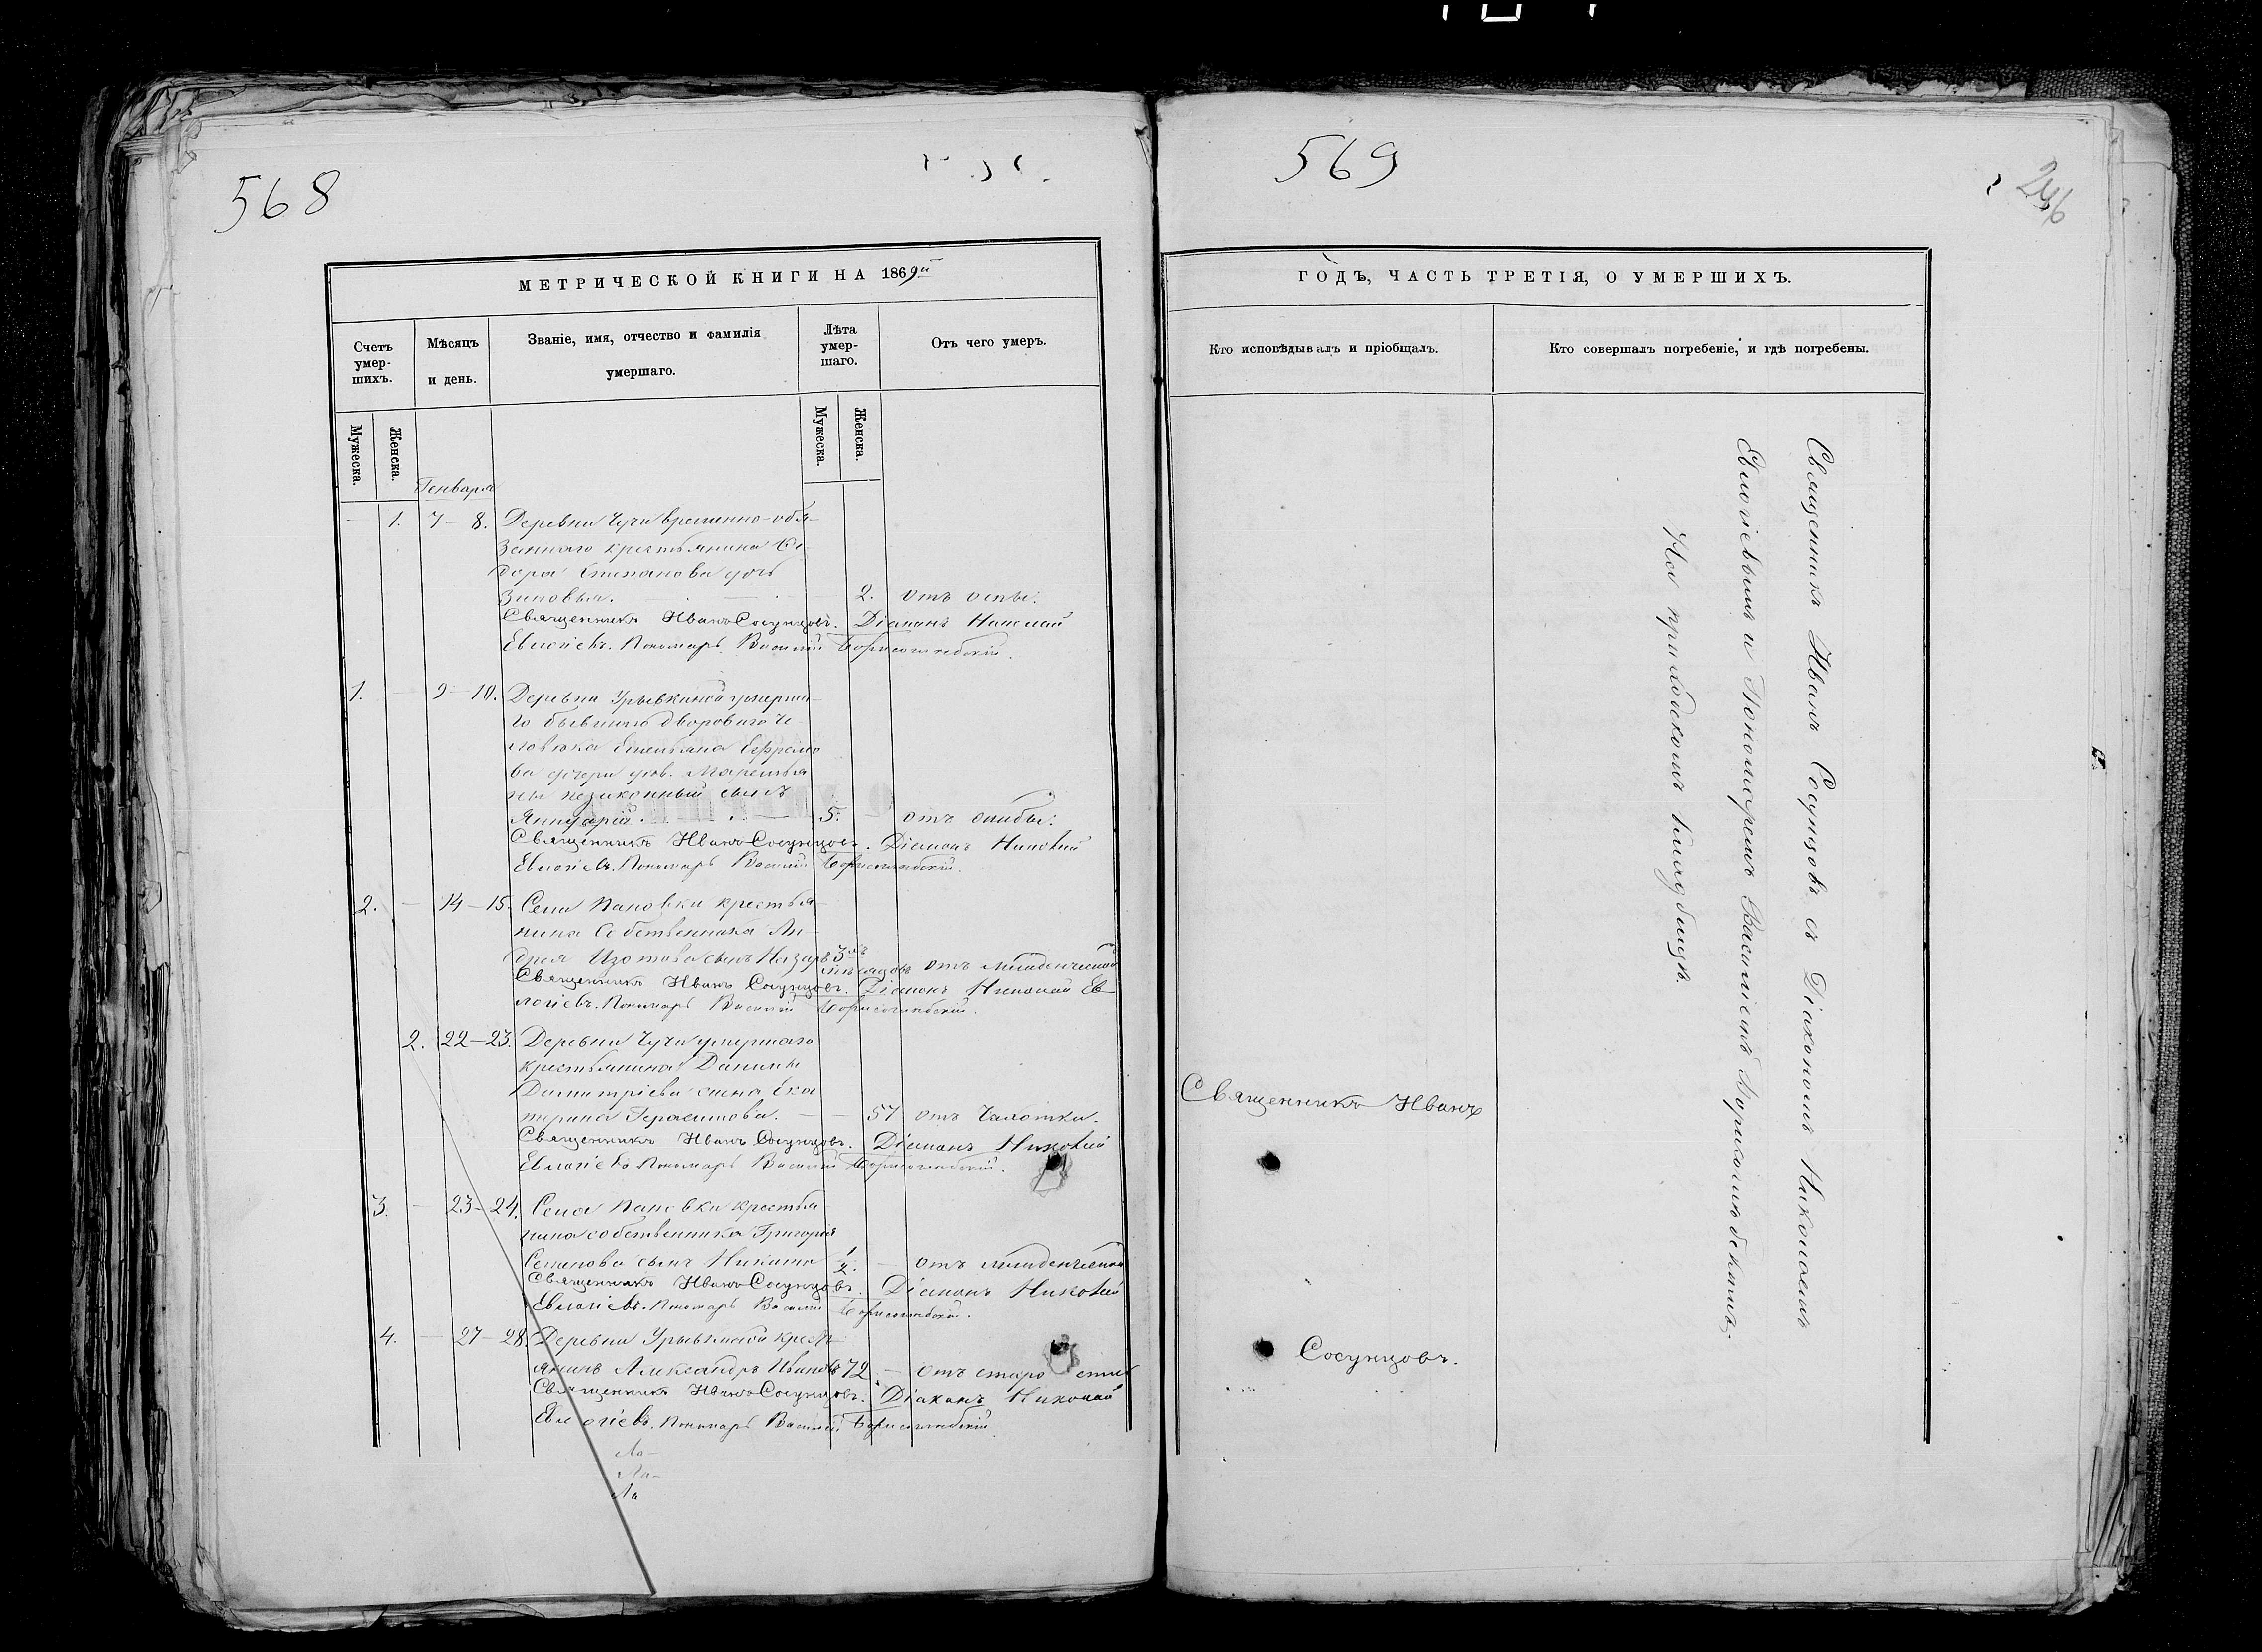 568
МЕТРИЧЕСКОЙ КНИГИ НА 1869й
Счетъ умер-шихъ.
Мѣсяцъ и день.
Званіе, имя, отчество и фамилія умершаго.
Лѣта умер-шаго.
Отъ чего умеръ.
Мужеска.
Женска.
Мужеска.
Женска.
Генваря
1. 7–8. Деревни Чучи временно-обя-
заннаго крестьянина Ѳе-
дора Степанова дочь
Зиновья. 2. отъ оспы.
Священникъ Иванъ Сосунцовъ. Діаконъ Николай
Евлогіевъ. Пономарь Василій Борисоглѣбскій.
1. 9–10. Деревни Урывкиной умерша-
го бывшаго двороваго че-
ловѣка Емельяна Ефремо
ва дочери дѣв.
ны незаконный сынъ
Яннуарій. 5. отъ оспы.
Священникъ Иванъ Сосунцовъ. Діаконъ Николай
Евлогіевъ. Пономарь Василій Борисоглѣбскій.
2. 14–15. Села Пановки крестья-
нина собственника Ан-
дрея Изотова сынъ Назаръ 3хъ
мѣсяцовъ отъ младенческой
Священникъ Иванъ Сосунцовъ. Діаконъ Николай Ев-
логіевъ. Пономарь Василій Борисоглѣбскій.
2. 22–23. Деревни Чучи умершаго
крестьянина Данилы
Димитріева жена Ека
терина Герасимова. 57 отъ чахотки.
Священникъ Иванъ Сосунцовъ. Діаконъ Николай
Евлогіевъ Пономарь Василій Борисоглѣбскій.
3. 23–24. Села Пановки крестья
нина собственника Григорія
Семенова сынъ Никита ½ отъ младенческой
Священникъ Иванъ Сосунцовъ. Діаконъ Николай
Евлогіевъ. Пономарь Василій Борисоглѣбскій.
4. 27–28. Деревни Урывкиной крест-
янинъ Александръ Ивановъ 72. отъ старости
Священникъ Иванъ Сосунцовъ. Діаконъ Николай
Евлогіевъ. Пономарь Василій Борисоглѣбскій
569
246
ГОДЪ, ЧАСТЬ ТРЕТІЯ, О УМЕРШИХЪ.
Кто исповѣдывалъ и пріобщалъ.
Кто совершалъ погребеніе, и гдѣ погребены.
Священникъ Иванъ
Сосунцовъ.
Священникъ Иванъ Сосунцовъ съ Діакономъ Николаемъ
Евлогіевымъ и Пономаремъ Василіемъ Борисоглѣбскимъ,
На приходскомъ кладбищѣ.